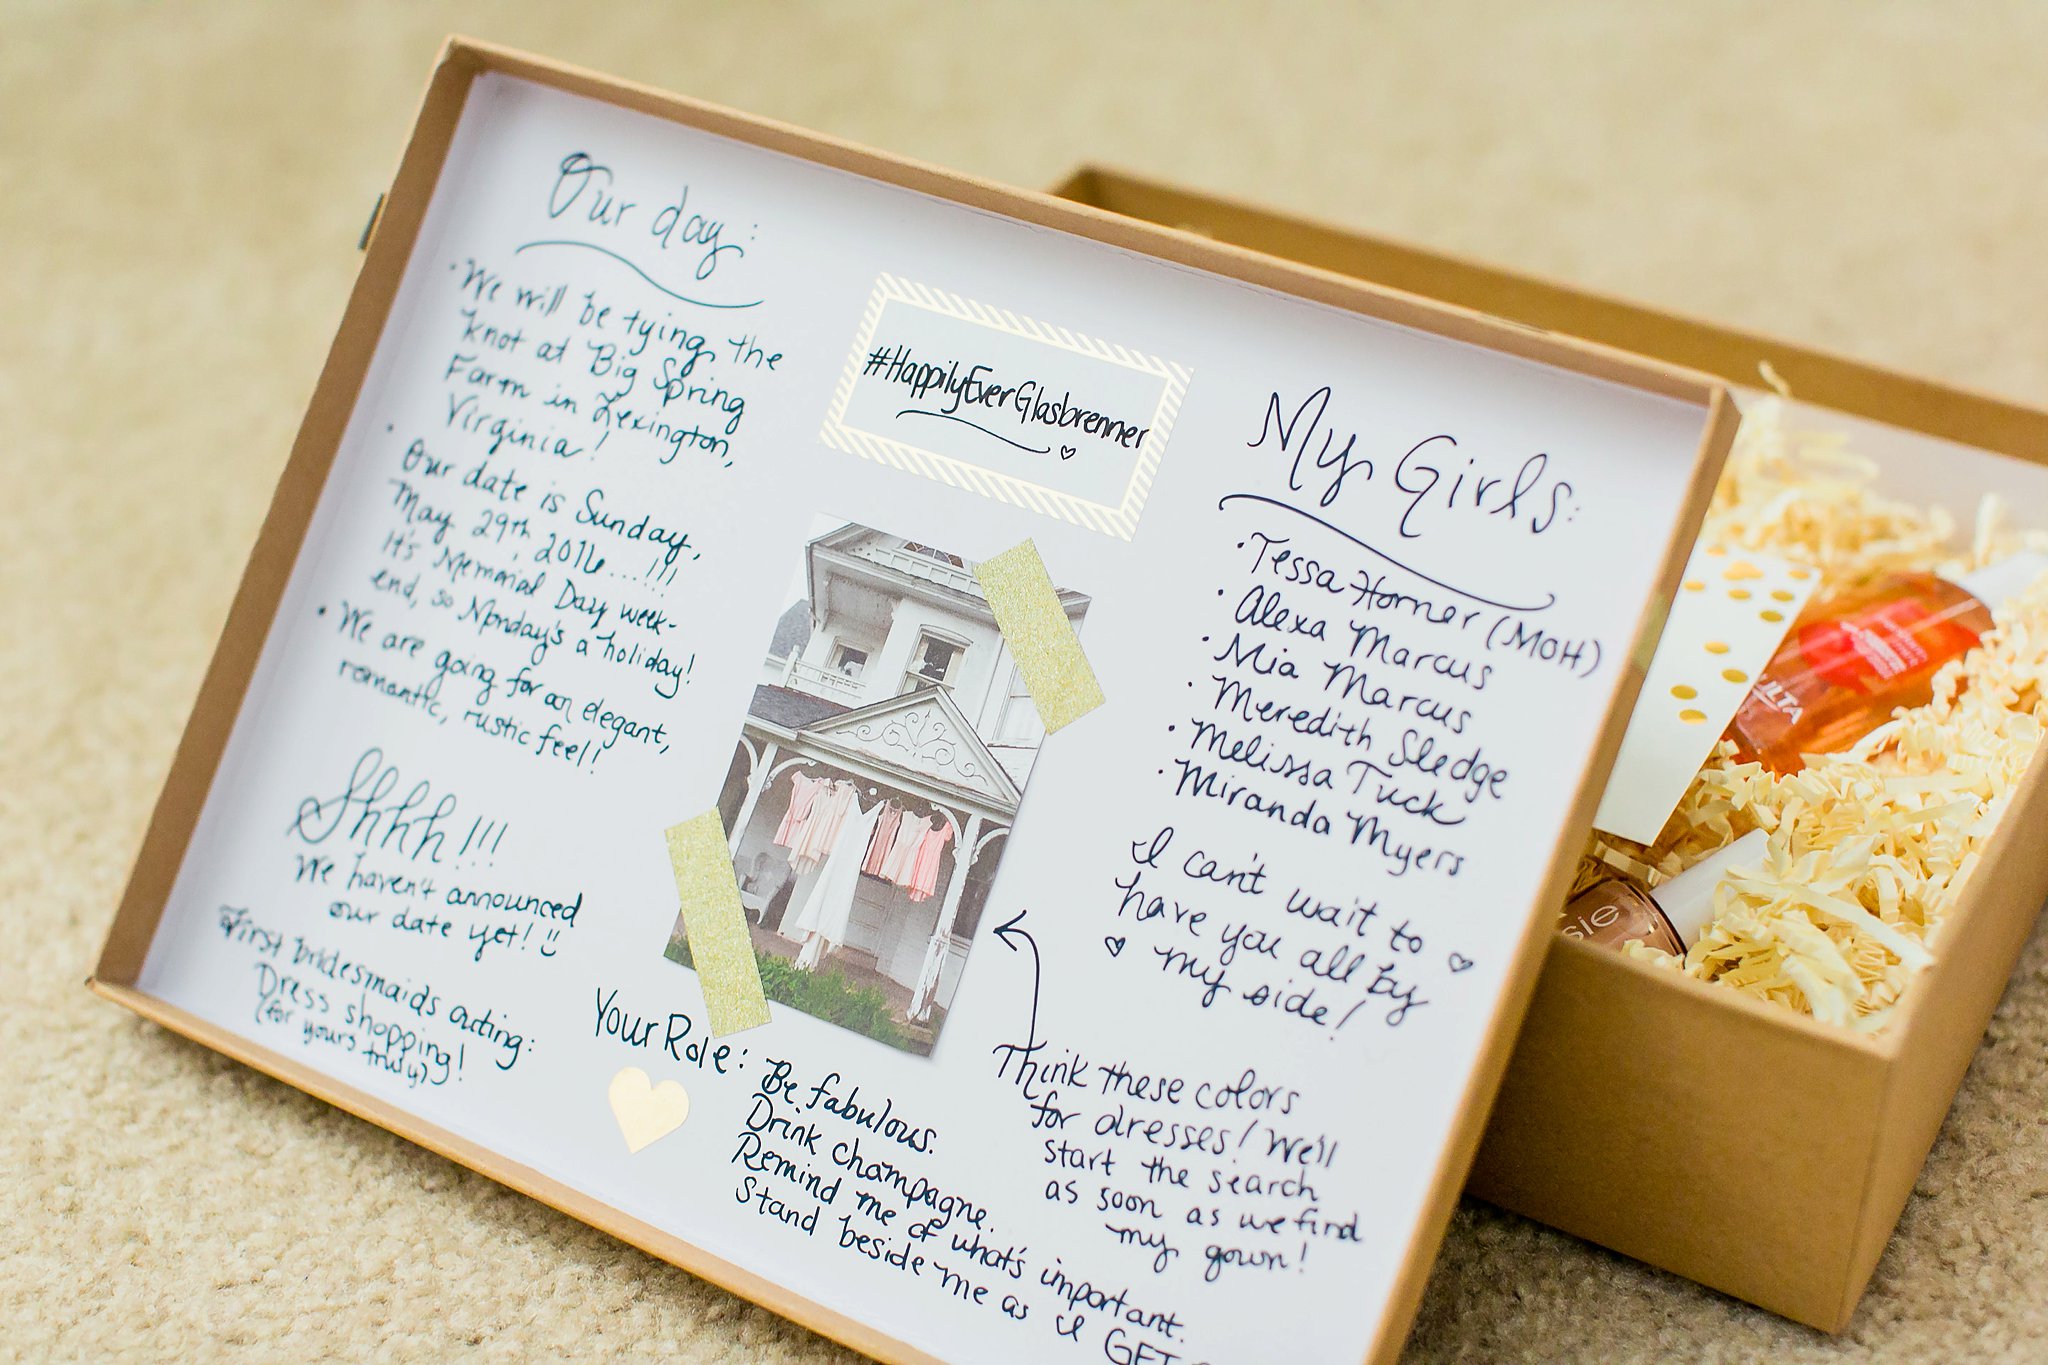 Our day:
• We will be tying the
knot at Big Spring
Farm in Lexington,
Virginia!
• Our date is Sunday,
May 29th, 2016...!!!
It's Memorial Day week-
end, so Monday's a holiday!
• We are going for an elegant,
romantic, rustic feel!
Shhh!!!
We haven't announced
our date yet!
First bridesmaids outing:
Dress shopping!
(for yours truly)
#HappilyEverGlasbrenner
Your Role:
Be fabulous.
Drink champagne.
Remind me of what's important.
Stand beside me as I GET
My Girls:
• Tessa Horner (MOH)
• Alexa Marcus
• Mia Marcus
• Meredith Sledge
• Melissa Tuck
• Miranda Myers
I can't wait to
have you all by
my side!
Think these colors
for dresses! We'll
start the search
as soon as we find
my gown!
ULTA
sie